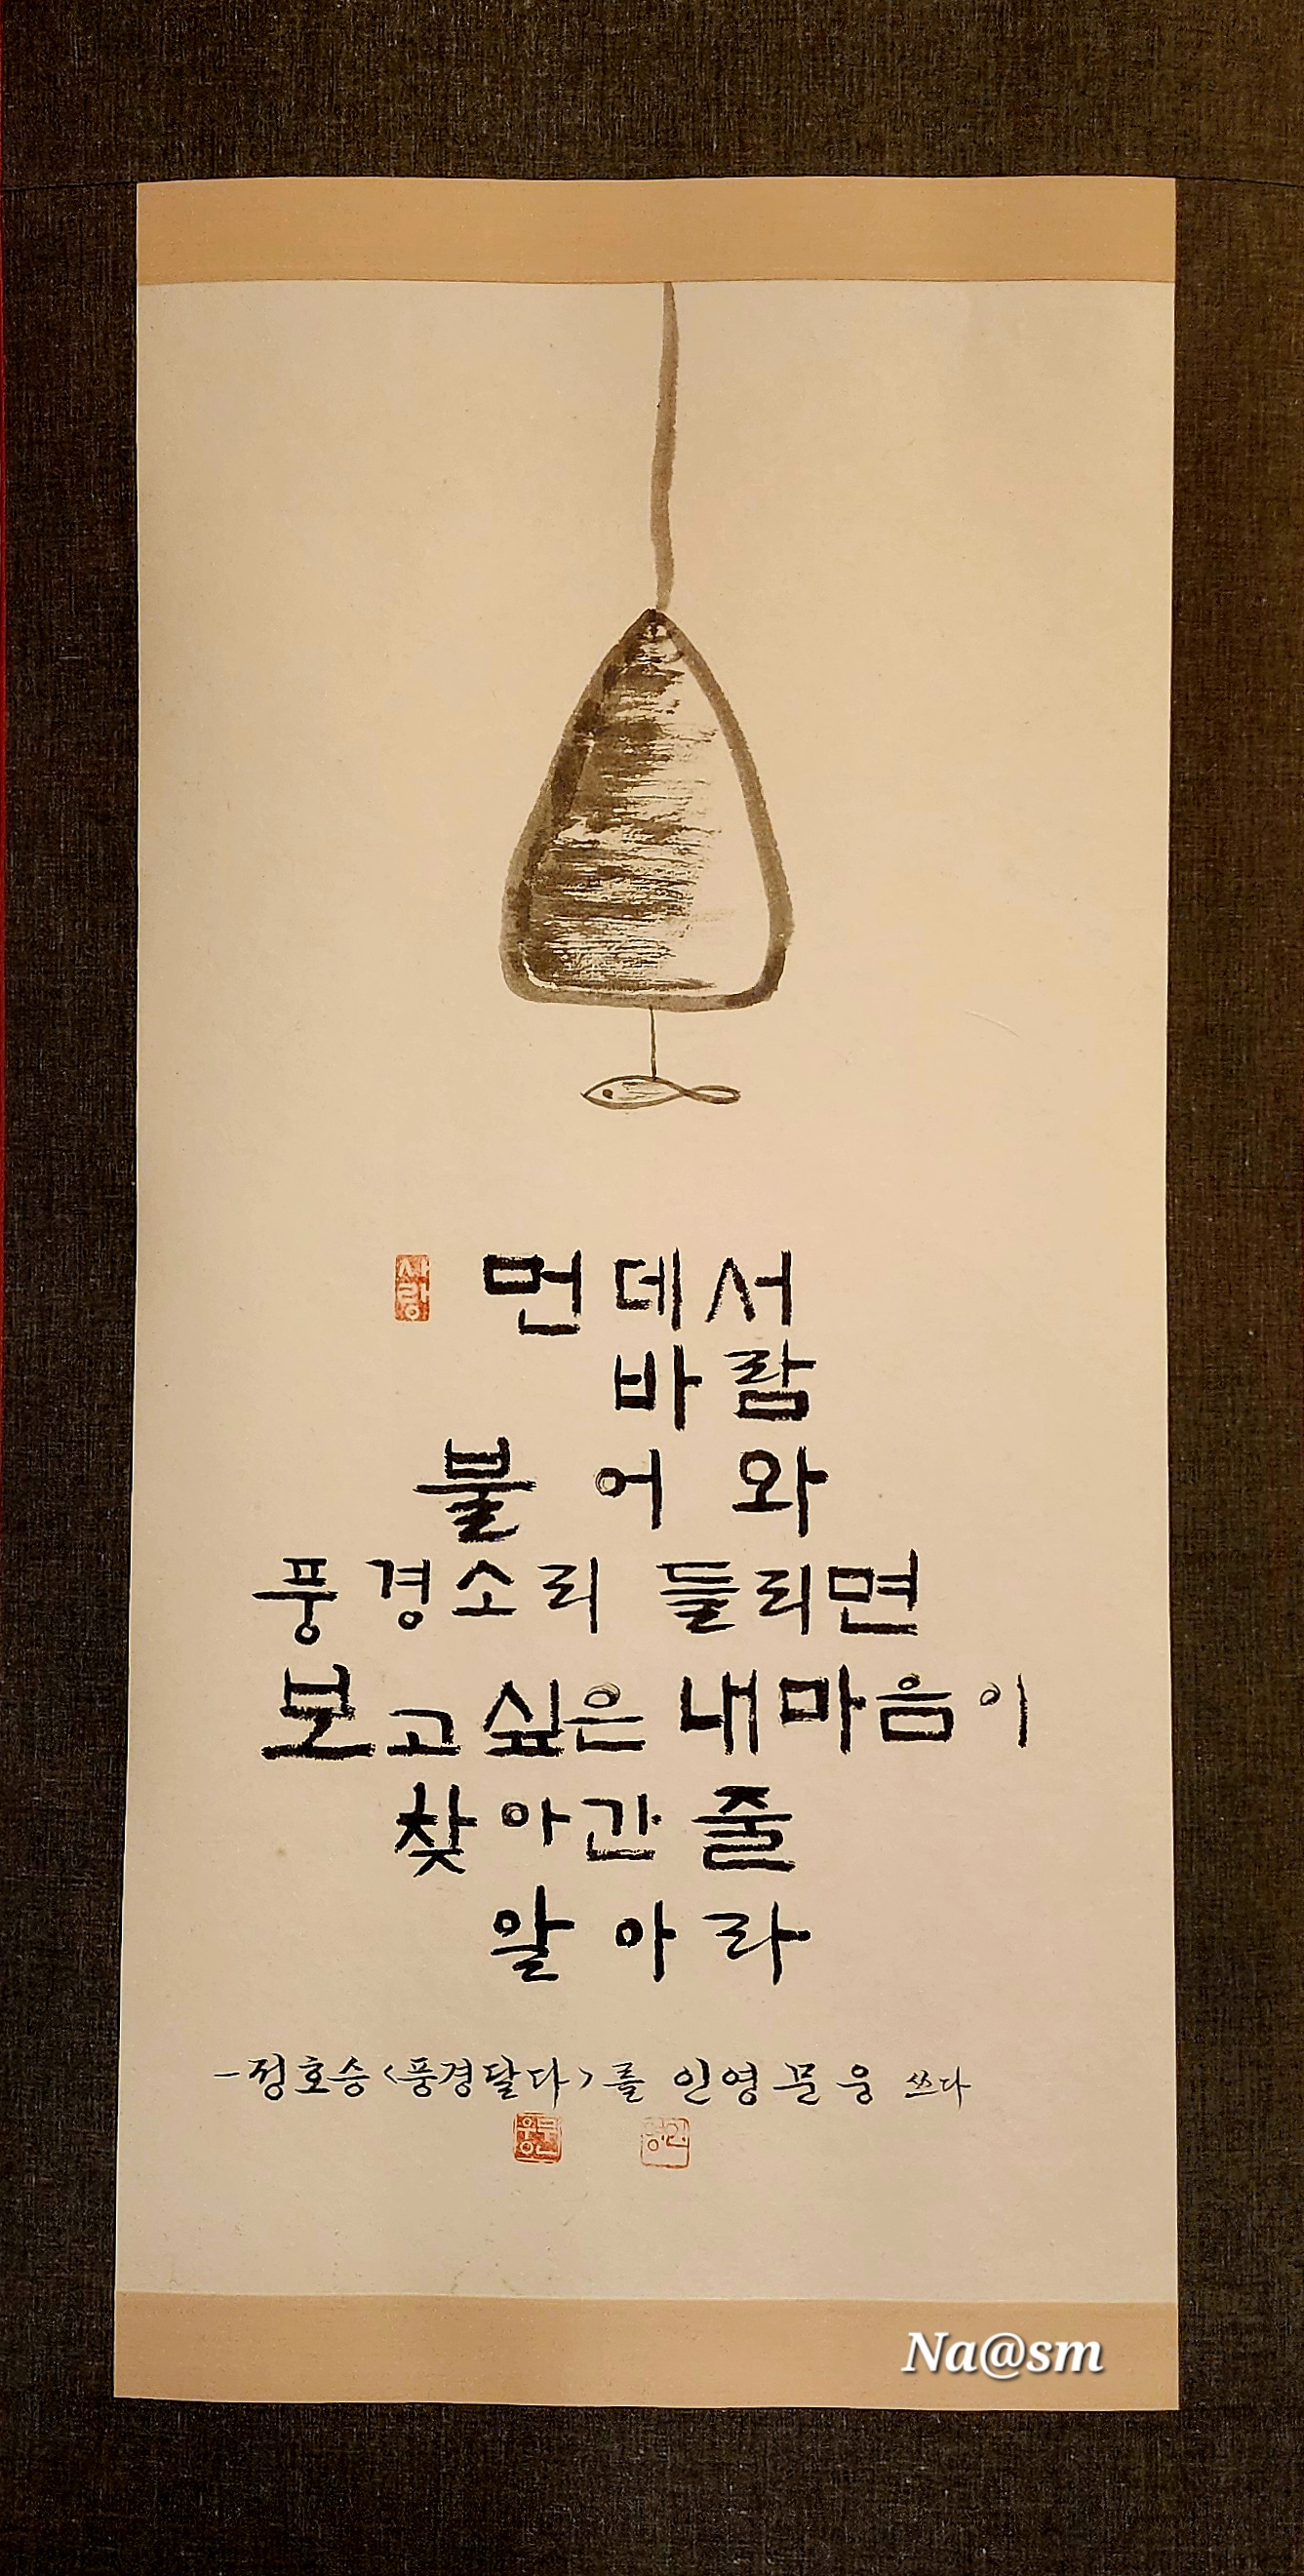 사랑
먼데서
바람
불어와
풍경소리 들리면
보고싶은 내마음이
찾아간 줄
알아라
-정호승<풍경달다>를 인영 문웅 쓰다
문웅
인영
Na@sm